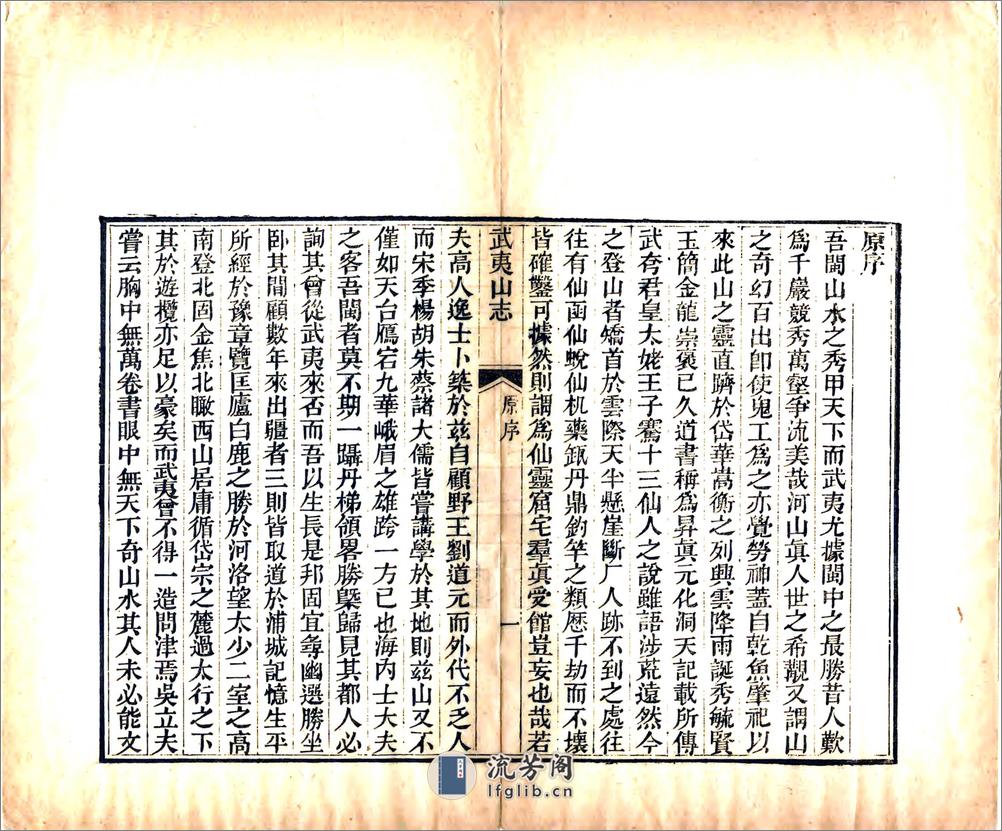 原序
吾閩山水之秀甲天下而武夷尤據閩中之最勝昔人歎
爲千巖競秀萬壑爭流美哉河山眞人世之希觀又謂山
之奇幻百出卽使鬼工爲之亦覺勞神蓋自乾魚肇祀以
來此山之靈直躋於岱華嵩衡之列興雲降雨誕秀毓賢
玉簡金龍崇褒已久道書稱爲昇眞元化洞天記載所傳
武夷君皇太姥王子騫十三仙人之說雖語涉荒遠然今
之登山者矯首於雲際天半懸崖斷厂人跡不到之處往
往有仙函仙蛻仙机藥鈲丹鼎釣竿之類歷千劫而不壞
皆確鑿可據然則謂爲仙靈窟宅羣眞爰館豈妄也哉若
武夷山志
原序
一
夫高人逸士卜築於兹自顧野王劉道元而外代不乏人
而宋季楊胡朱蔡諸大儒皆嘗講學於其地則兹山又不
僅如天台鴈宕九華峨眉之雄跨一方已也海內士大夫
之客吾閩者莫不期一躡丹梯領畧勝槩歸見其都人必
詢其曾從武夷來否而吾以生長是邦固宜尋幽選勝坐
卧其間顧數年來出疆者三則皆取道於浦城記憶生平
所經於豫章覽匡廬白鹿之勝於河洛望太少二室之高
南登北固金焦北瞰西山居庸循岱宗之麓過太行之下
其於遊攬亦足以豪矣而武夷曾不得一造問津焉吳立夫
嘗云胸中無萬卷書眼中無天下奇山水其人未必能文
流芳阁
lfglib.cn